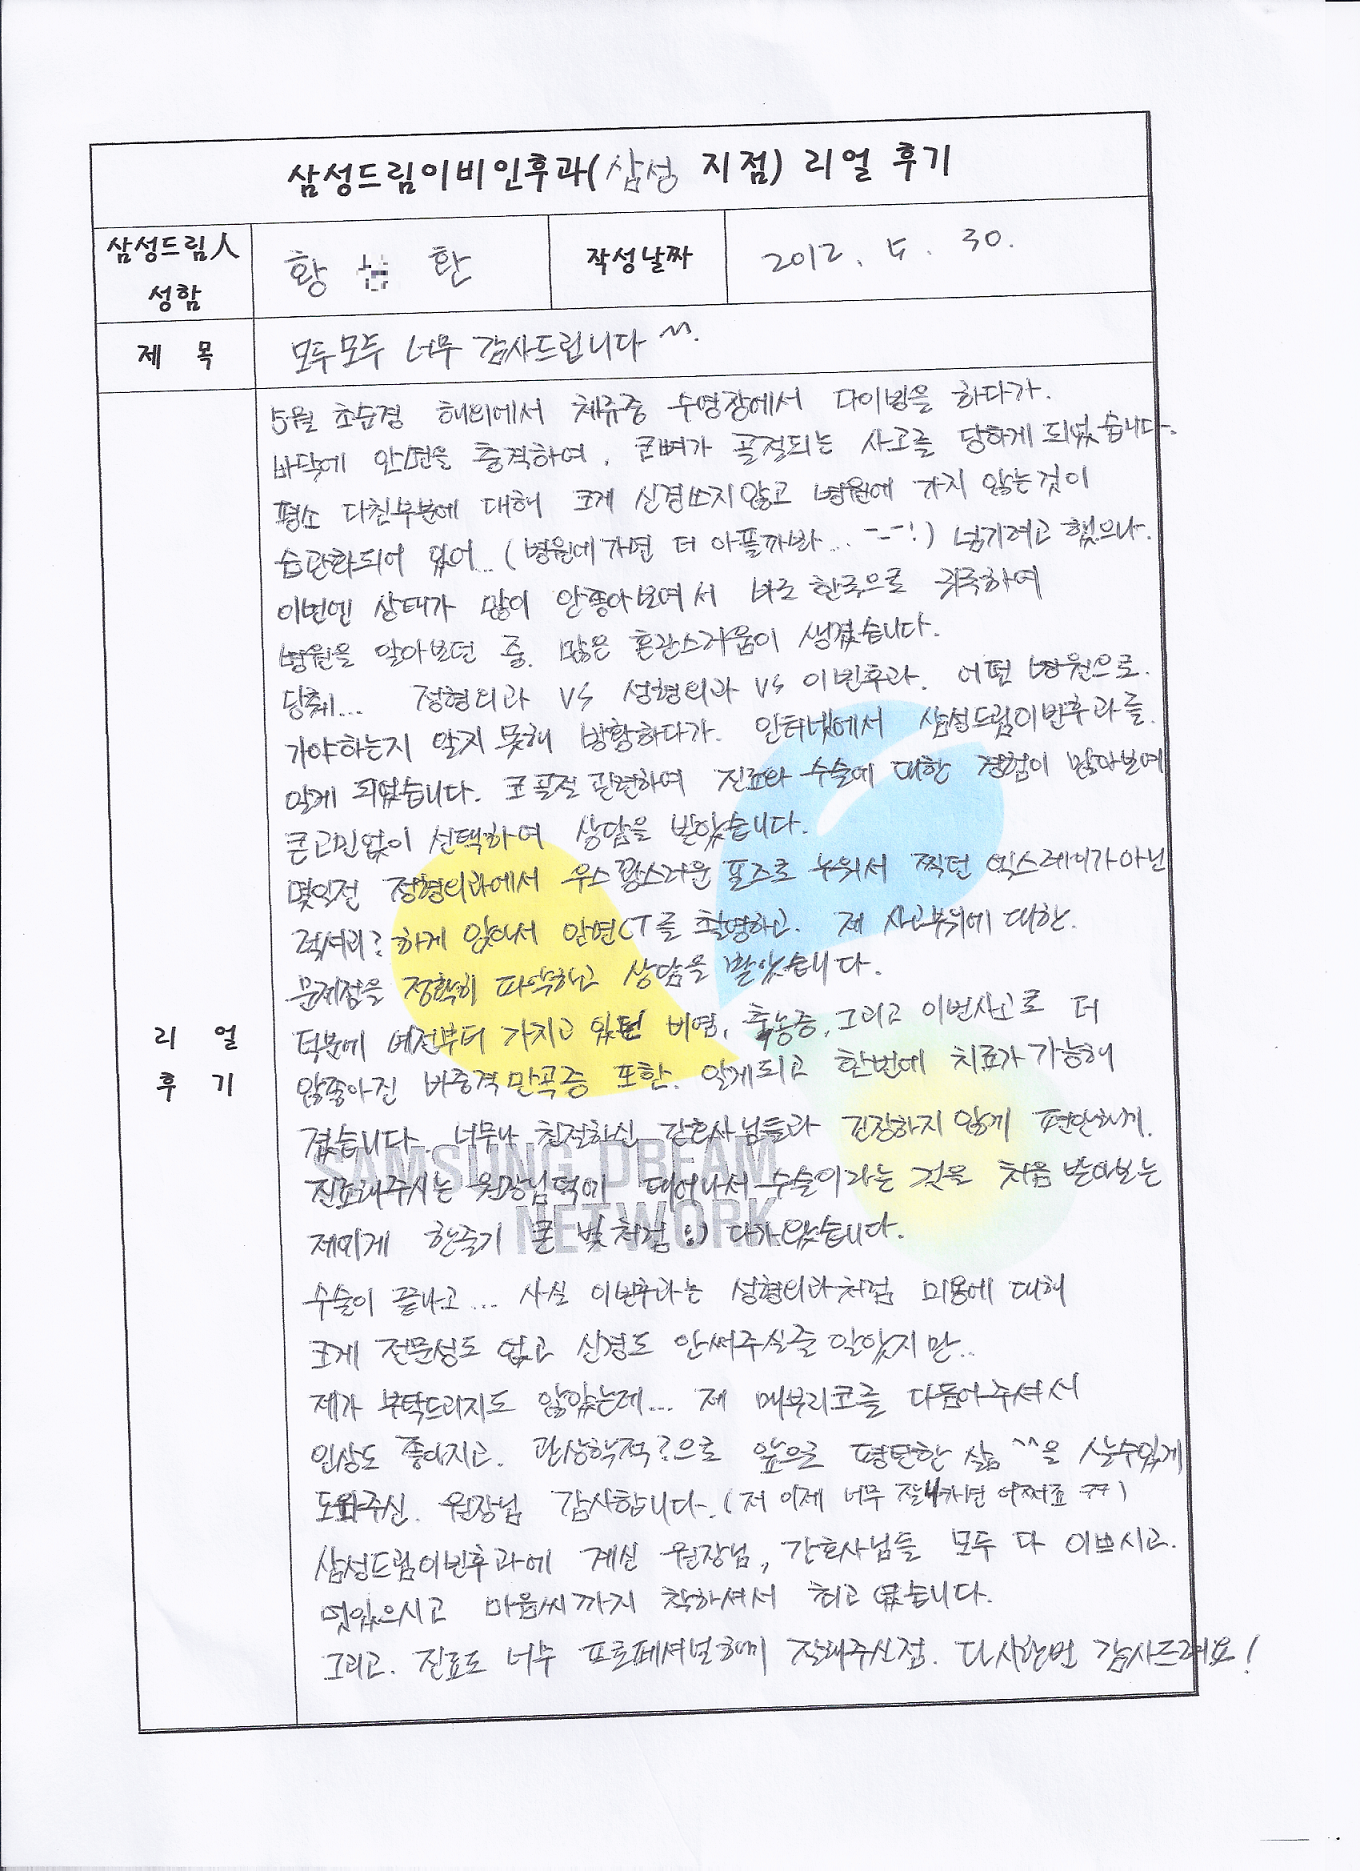 삼성드림이비인후과(삼성 지점) 리얼 후기
삼성드림人 성함
황 환
작성날짜
2012. 5. 30.
제 목
모두모두 너무 감사드립니다 ^^.
리 얼
후 기
5월 초순경 해외에서 체류중 수영장에서 다이빙을 하다가.
바닥에 안면을 충격하여, 코뼈가 골절되는 사고를 당하게 되었습니다.
평소 다친부분에 대해 크게 신경쓰지않고 병원에 가지 않는것이
습관화되어 있어... (병원에가면 더 아플까봐... ㅡㅡ!) 넘기려고 했으나.
이번엔 상태가 많이 안좋아보여서 바로 한국으로 귀국하여
병원을 알아보던 중. 많은 혼란스러움이 생겼습니다.
당췌... 정형외과 VS 성형외과 VS 이빈후과. 어떤 병원으로.
가야하는지 알지 못해 방황하다가. 인터넷에서 삼성드림이빈후과를.
알게 되었습니다. 코골절 관련하여 진료와 수술에 대한 경험이 많아보여
큰고민없이 선택하여 상담을 받았습니다.
몇일전 정형외과에서 우스꽝스러운 포즈로 누워서 찍던 엑스레이가아닌
럭셔리? 하게 앉아서 안면CT를 촬영하고. 제 사고부위에 대한.
문제점을 정확히 파악하고 상담을 받았습니다.
덕분에 예전부터 가지고 있던 비염, 축농증, 그리고 이번사고로 더
않좋아진 비중격만곡증 포함. 알게되고 한번에 치료가 가능해
졌습니다. 너무나 친절하신 간호사님들과 긴장하지 않게 편안하게.
진료해주시는 원장님덕에 태어나서 수술이라는 것을 처음 받아보는
제에게 한줄기 큰 빛처럼 :) 다가왔습니다.
수술이 끝나고... 사실 이빈후과는 성형외과처럼 미용에 대해
크게 전문성도 없고 신경도 안써주실줄 알았지만..
제가 부탁드리지도 않았는데... 제 매부리코를 다듬어주셔서
인상도 좋아지고. 관상학적?으로 앞으로 평탄한 삶^^을 살수있게
도와주신. 원장님 감사합니다. (저 이제 너무 잘나가면 어쩌죠 ㅋㅋ)
삼성드림이빈후과에 계신 원장님, 간호사님들 모두 다 이쁘시고.
멋있으시고 마음씨까지 착하셔서 최고 였습니다.
그리고. 진료도 너무 프로페셔널하게 잘해주신점. 다시한번 감사드려요!
SAMSUNG DREAM
NETWORK